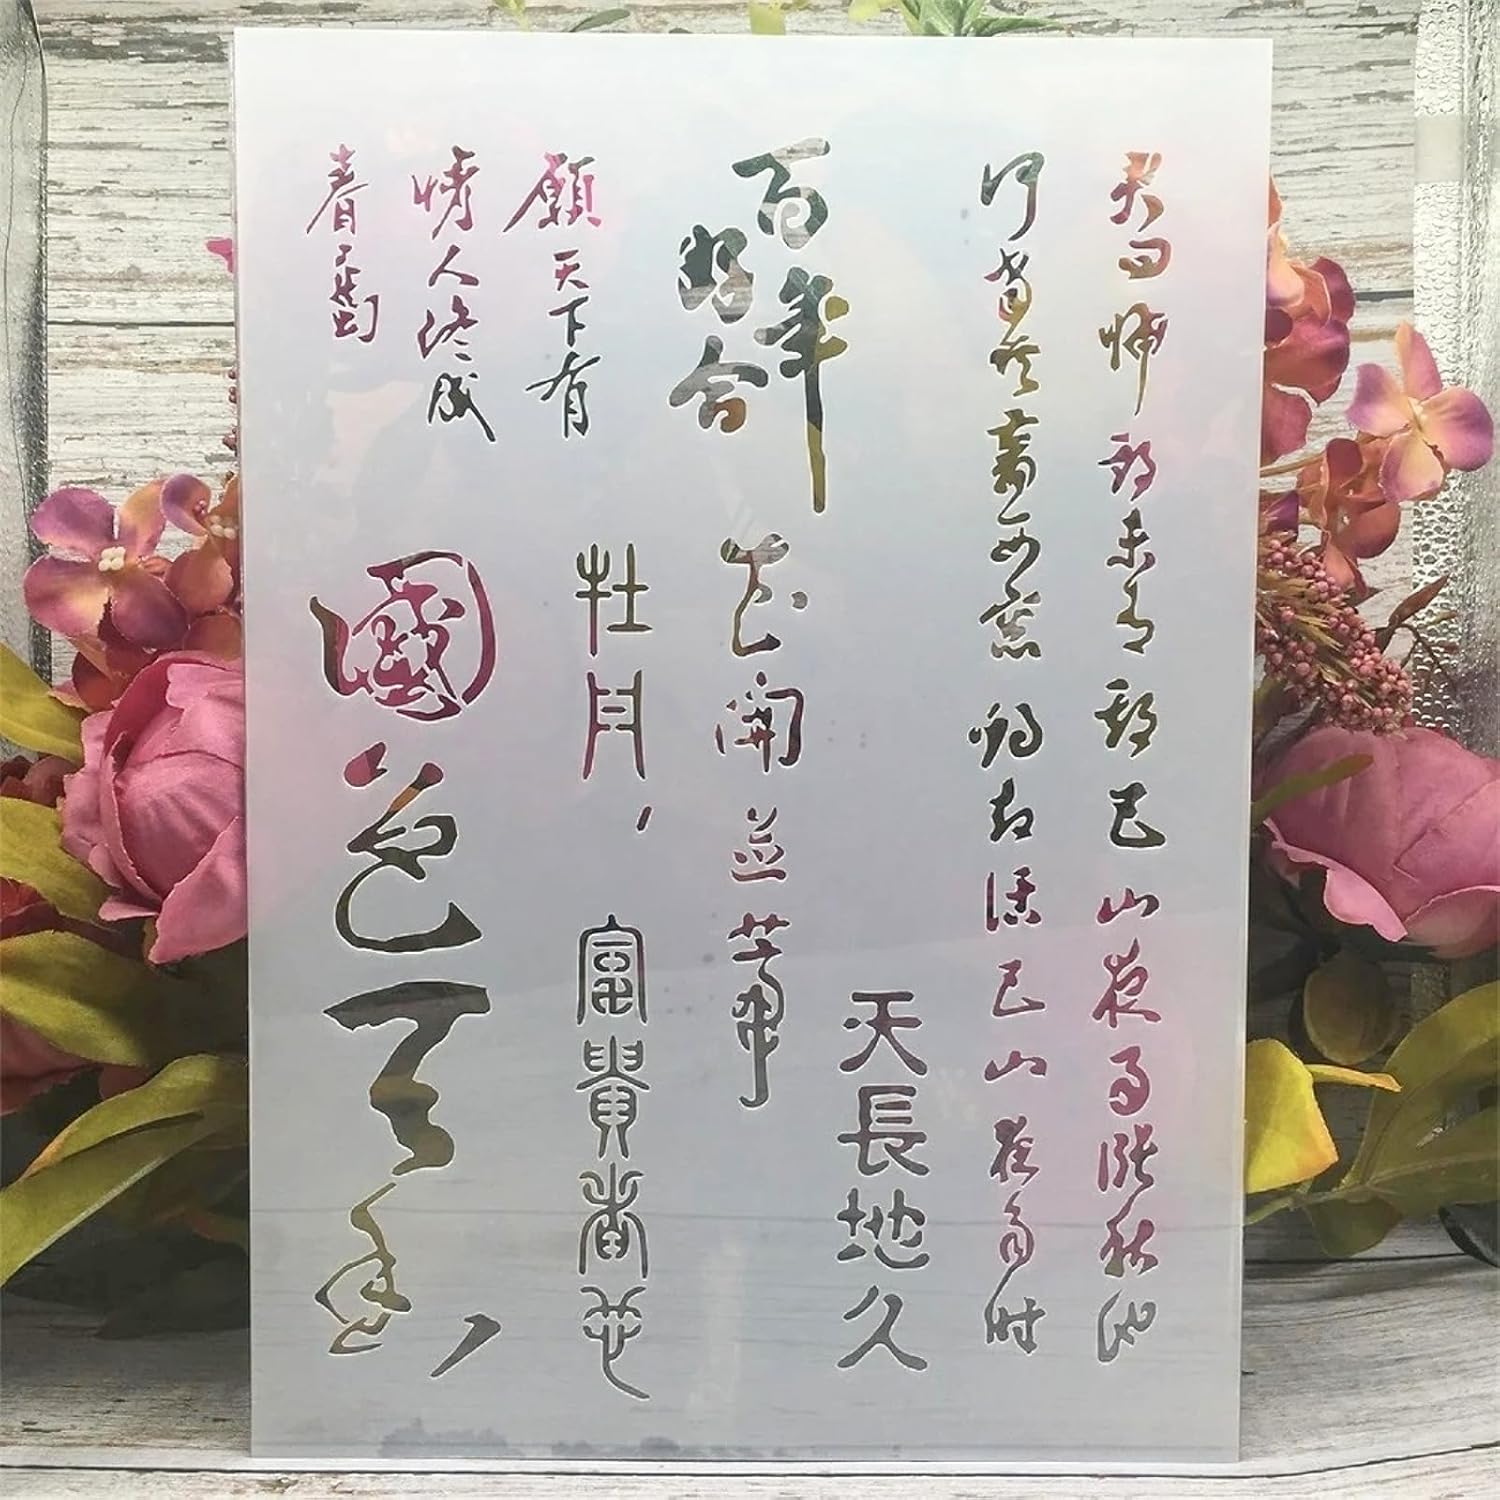 君问归期未有期巴山夜雨涨秋池
何当共剪西窗烛却话巴山夜雨时
百年
好合
天長地久
花開並蒂
願天下有
情人終成
眷屬
牡丹,
富貴花
國色天香